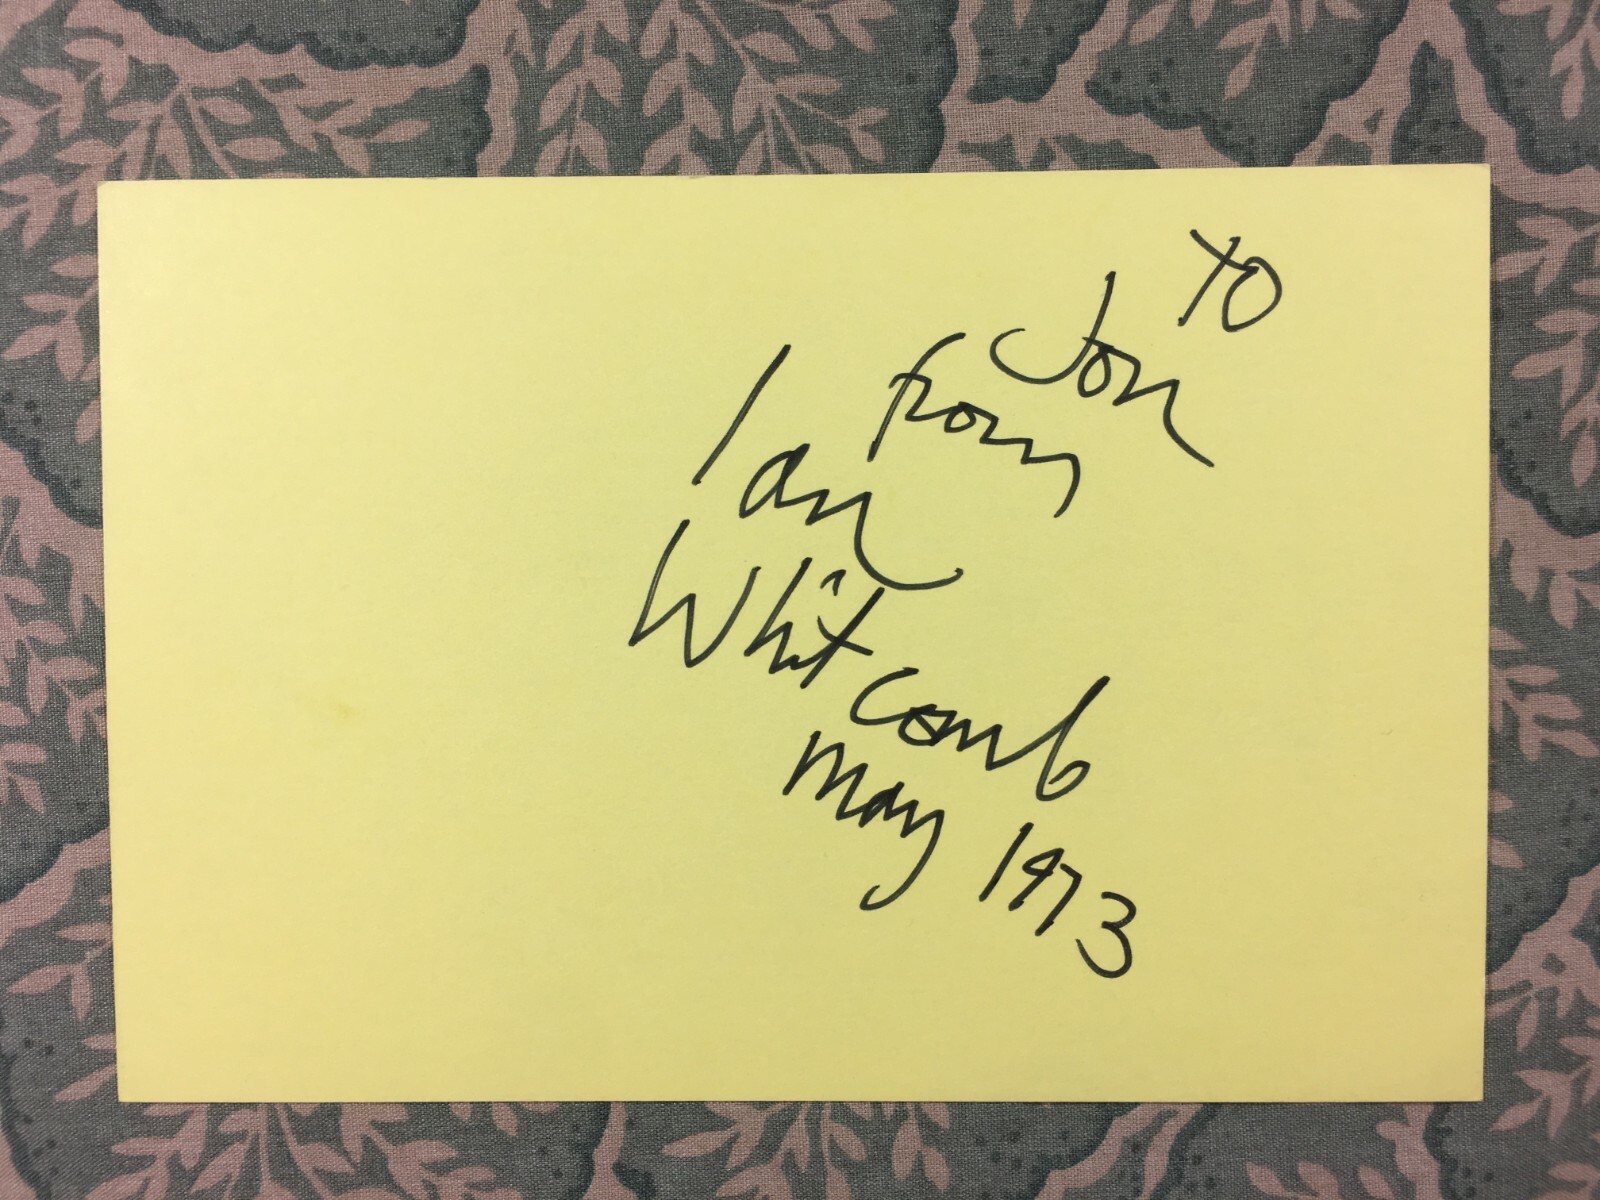 to
Jon
from
Ian
Whitcomb
May 1973